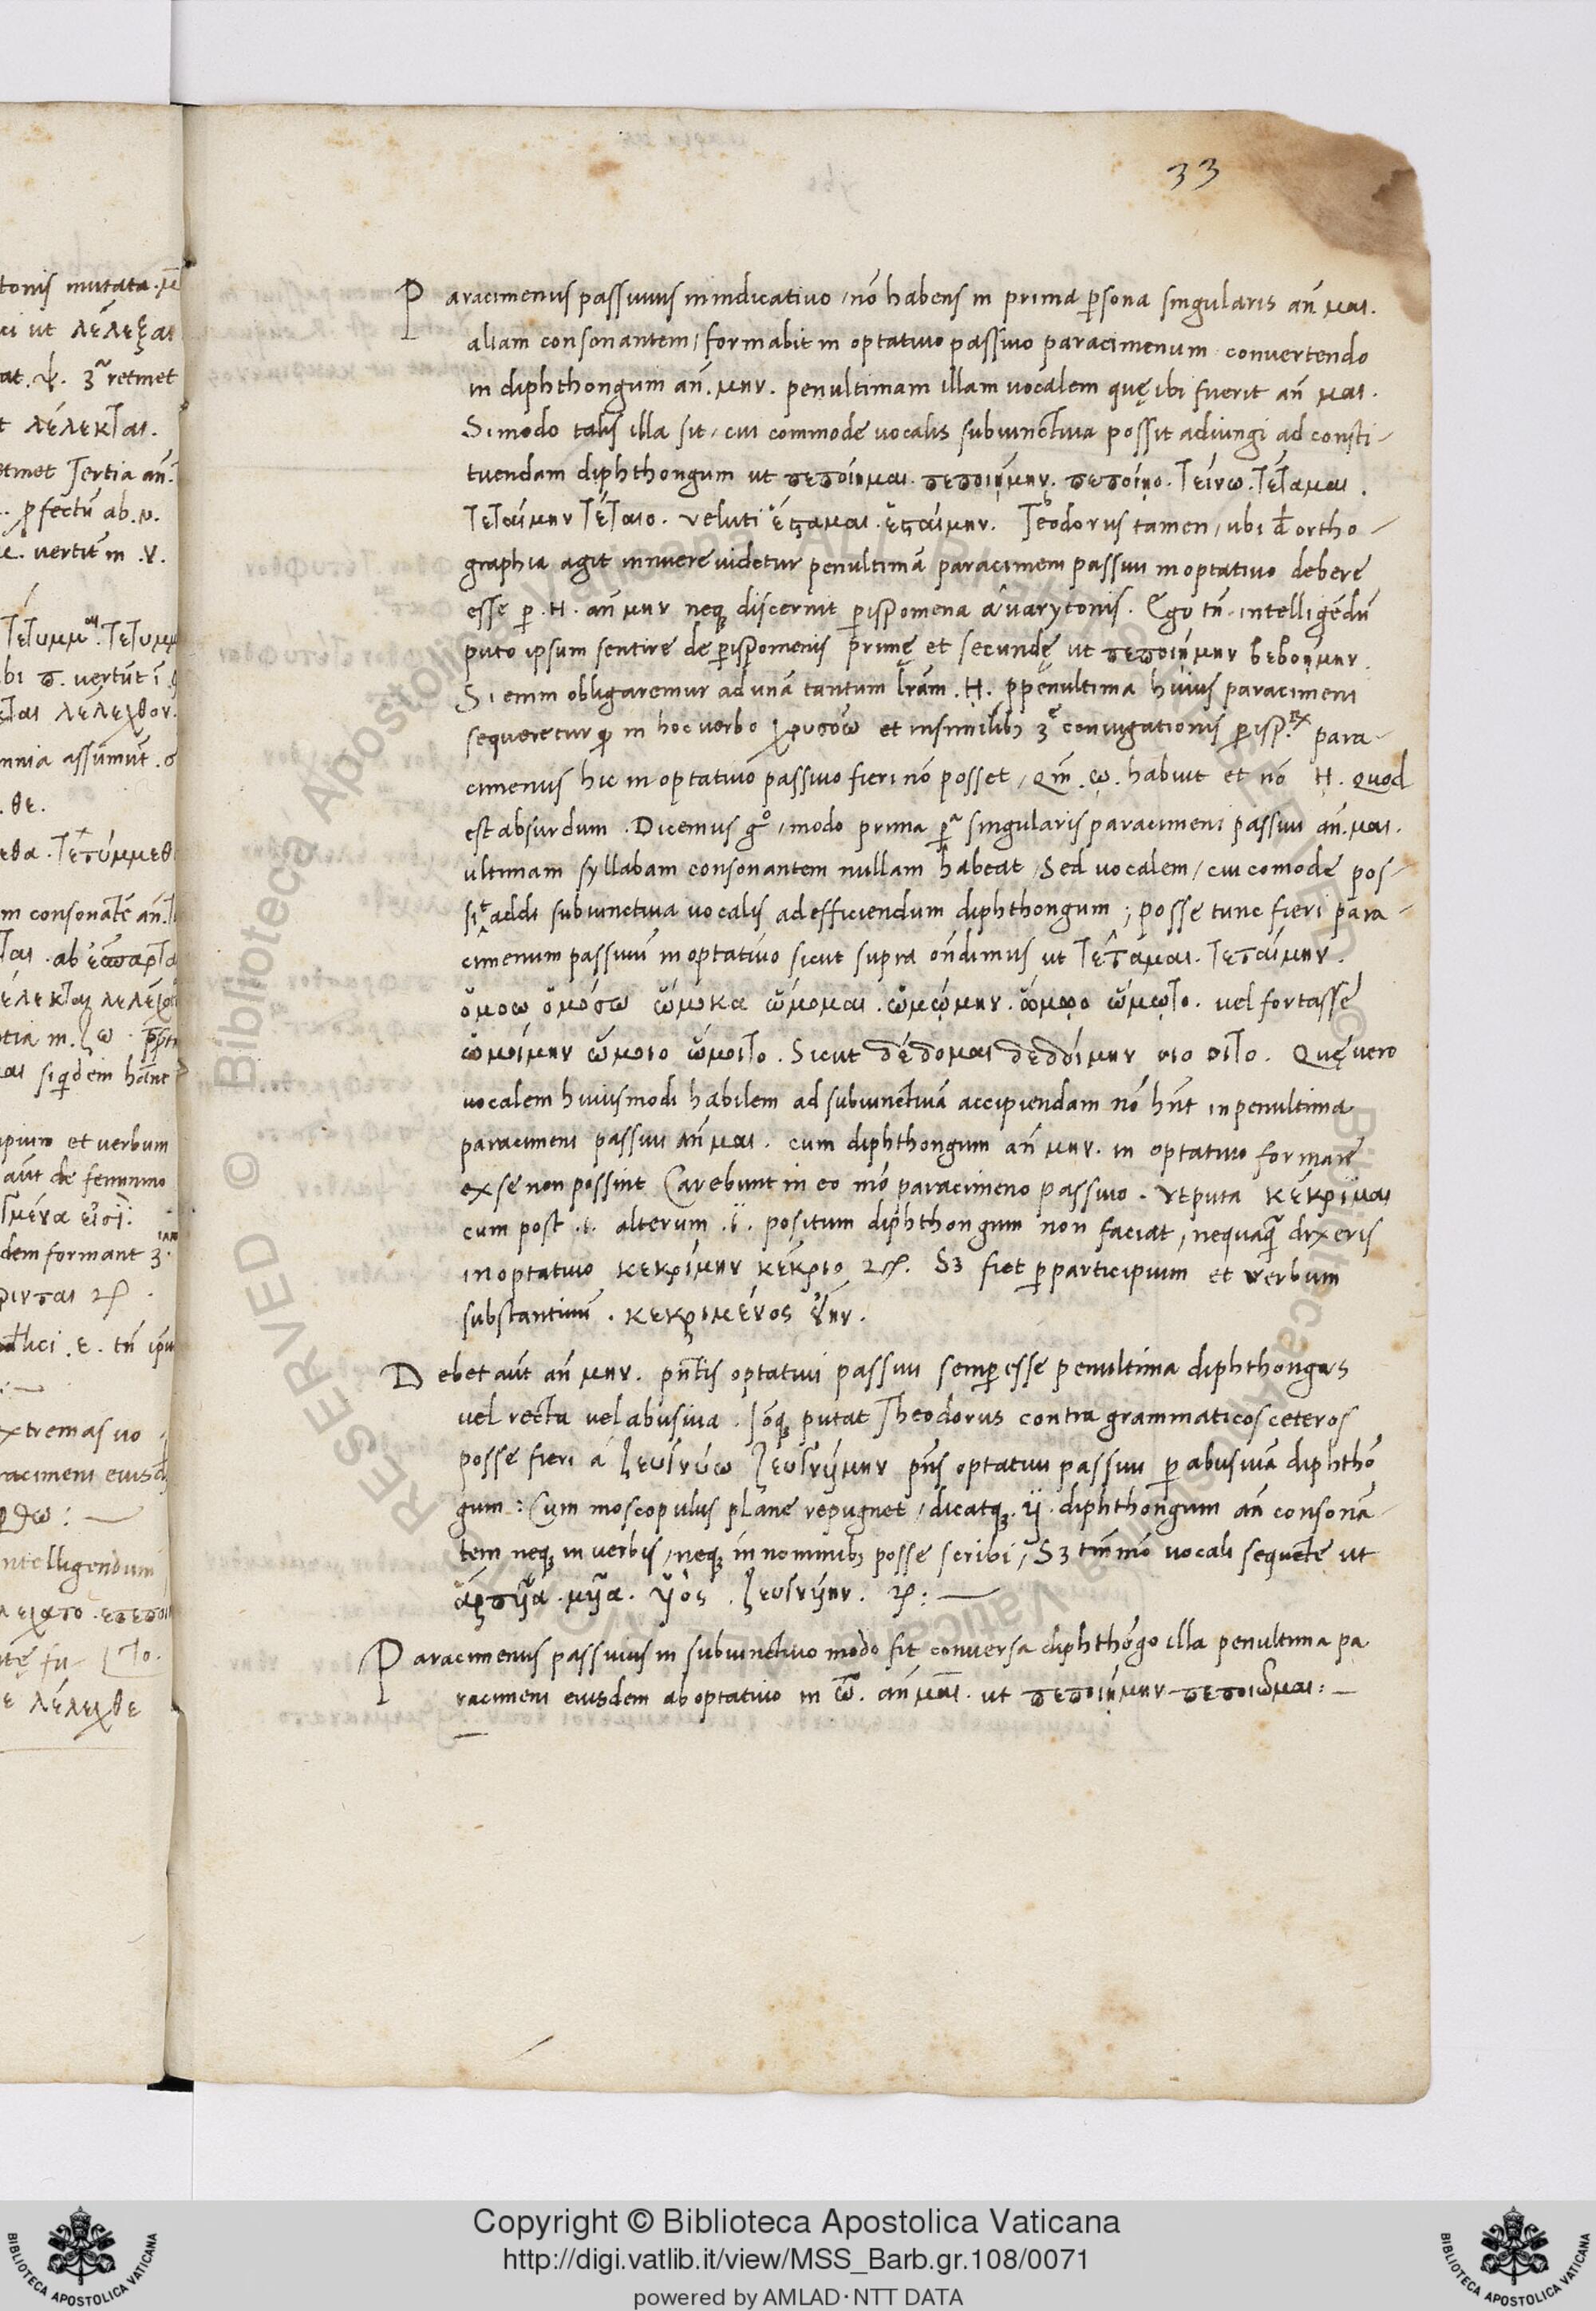 33
Paracimenus passiuus in indicatiuo, nō habens in prima ꝑsona singularis añ μαι.
aliam consonantem, formabit in optatiuo passiuo paracimenum conuertendo
in diphthongum añ. μην. penultimam illam uocalem quę ibi fuerit añ μαι.
Si modo talis illa sit, cui commode uocalis subiunctiua possit adiungi ad consti-
tuendam diphthongum ut πεποίημαι. πεποιῄμην. πεποίῃο. τείνω. τέταμαι.
τεταίμην τέταιο. veluti ἔςαμαι. ἐςαίμην. Teodorus tamen, ubi đ ortho-
graphia agit innuere uidetur penultimā paracimeni passiui in optatiuo debere
esse ꝑ .ῃ. añ μην neqꝫ discernit ꝑispomena a uarytonis. Ego tñ intelligēdū
puto ipsum sentire de ꝑispomenis primę et secundę ut πεποιῄμην βεβοῄμην.
Si enim obligaremur ad unā tantum lr̄am .ῃ. ꝓpenultima huius paracimeni
sequeretur ꝙ in hoc uerbo χρυσόω et in similibꝫ 3ę coniugationis ꝑisp. para-
cimenus hic in optatiuo passiuo fieri nō posset, Qm̄ .ῳ. habuit et nō ῃ. quod
est absurdum. Dicemus gͦ, modo prima ꝑª singularis paracimeni passiui añ. μαι.
ultimam syllabam consonantem nullam habeat, Sed uocalem, cui comode pos-
sit addi subiunctiua uocalis ad efficiendum diphthongum; posse tunc fieri para-
cimenum passiuū in optatiuo sicut supra ōndimus ut τέταμαι. τεταίμην.
ὄμοω ὀμόσω ὤμοκα ὤμομαι. ὠμῴμην. ὤμῳο ὤμῳτο. vel fortasse
ὠμοίμην ὤμοιο ὤμοιτο. Sicut δέδομαι δεδοίμην οιο οιτο. Quę uero
uocalem huiusmodi habilem ad subiunctiuā accipiendam nō hn̄t in penultima
paracimeni passiui añ μαι. cum diphthongum añ μην. in optatiuo formare
ex se non possint Carebunt in eo mō paracimeno passiuo. vtputa κέκριμαι
cum post .ι. alterum .ϊ. positum diphthongum non faciat, nequaq̄ dixeris
in optatiuo κεκρίμην κέκριο Sꝫ fiet ꝑ participium et verbum
substantiuū. κεκριμένος εἴην.
Debet aūt añ μην. pn̄tis optatiui passiui semꝑ esse penultima diphthongus
vel recta uel abusiua. Iōqꝫ putat Theodorus contra grammaticos ceteros
posse fieri á ζευγνύω ζευγνύιμην pn̄s optatiui passiui ꝑ abusiuā diphthō
gum: Cum moscopulus plane repugnet, dicatqꝫ .υι. diphthongum añ consonā
tem neqꝫ in uerbis, neqꝫ in nominibꝫ posse scribi, Sꝫ tm̄mō uocali sequente ut
ἅρπυια. μυῖα. υἱός. ζευγνύιην.
Paracimenus passiuus in subiunctiuo modo fit conuersa diphthōgo illa penultima pa
racimeni eiusdem ab optatiuo in ω. añ μαι. ut πεποιῄμην πεποιῶμαι:
Copyright © Biblioteca Apostolica Vaticana
http://digi.vatlib.it/view/MSS_Barb.gr.108/0071
powered by AMLAD · NTT DATA
BIBLIOTECA APOSTOLICA VATICANA
BIBLIOTECA APOSTOLICA VATICANA